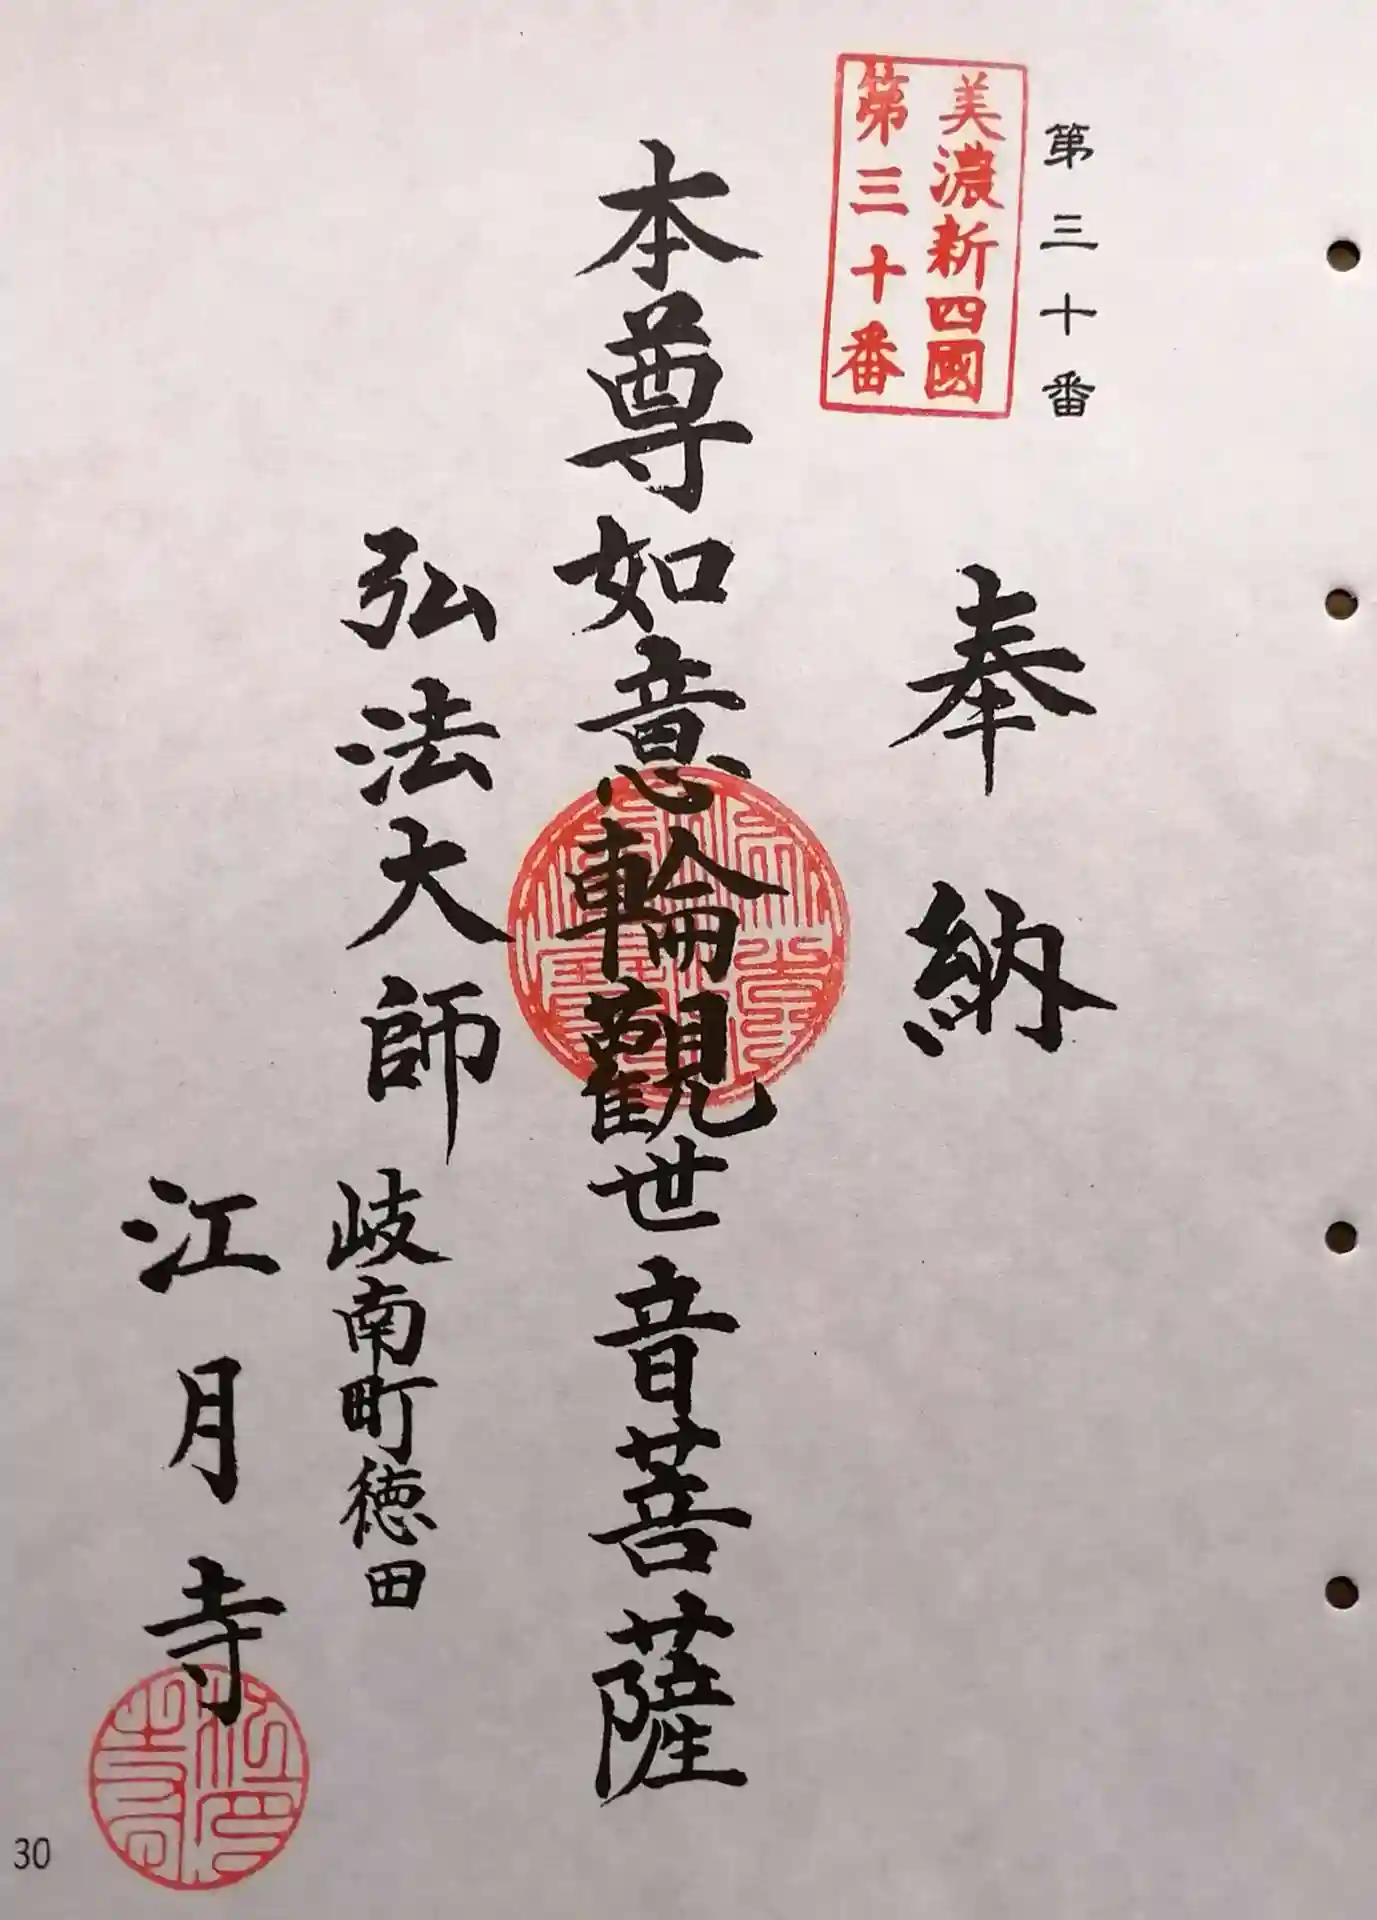 第三十番
美濃新四國
第三十番
奉納
本尊如意輪觀世音菩薩
弘法大師
岐南町徳田
江月寺
30